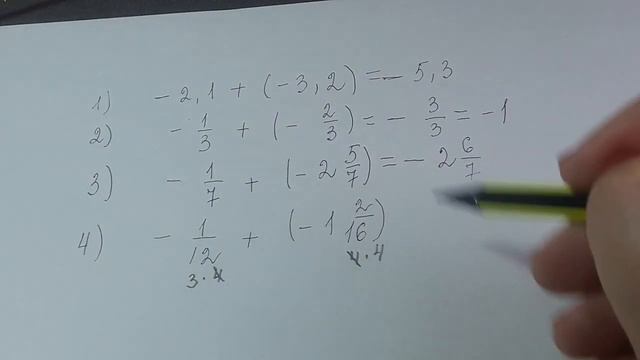 1) - 2,1 + (-3,2) = - 5,3
2) - 1/3 + (- 2/3) = - 3/3 = -1
3) - 1/7 + (-2 5/7) = - 2 6/7
4) - 1/12 + (-1 2/16)
3·4 4·4